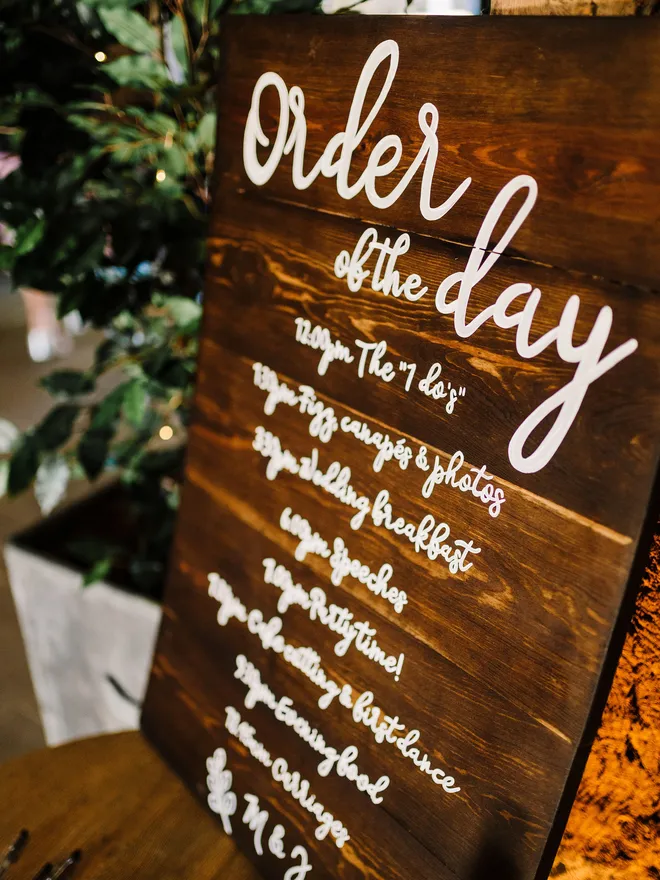 Order
of the day
12:00pm The "I do's"
1:30pm Fizz canapés & photos
3:30pm Wedding breakfast
6:00pm Speeches
7:00pm Party time!
Cake cutting & first dance
Evening food
Carriages
M & J